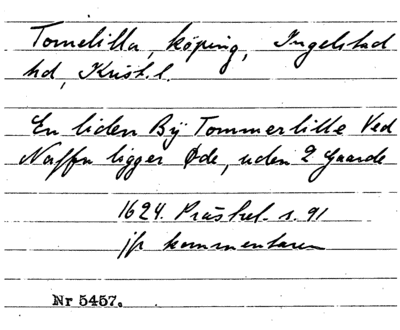 Tomelilla, köping, Ingelstad
hd, Krist. l.
En liden Bÿ Tommerlille Ved
Naffn ligger Øde, uden 2 Gaarde
1624. Prästrel. s. 91
jfr kommentaren
Nr 5457.